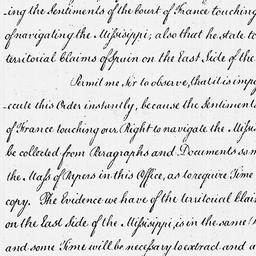 ing the Sentiments of the Court of France touching
of navigating the Missisippi; also that he state to
territorial Claims of Spain on the East Side of the
Permit me Sir to observe, that it is imp
cute this Order instantly, because the Sentiments
of France touching our Right to navigate the Missi
be collected from Paragraphs and Documents som
the Mass of Papers in this Office, as to require Time
copy. The Evidence we have of the territorial Clai
on the East Side of the Missisippi, is in the same
and some Time will be necessary to extract and a